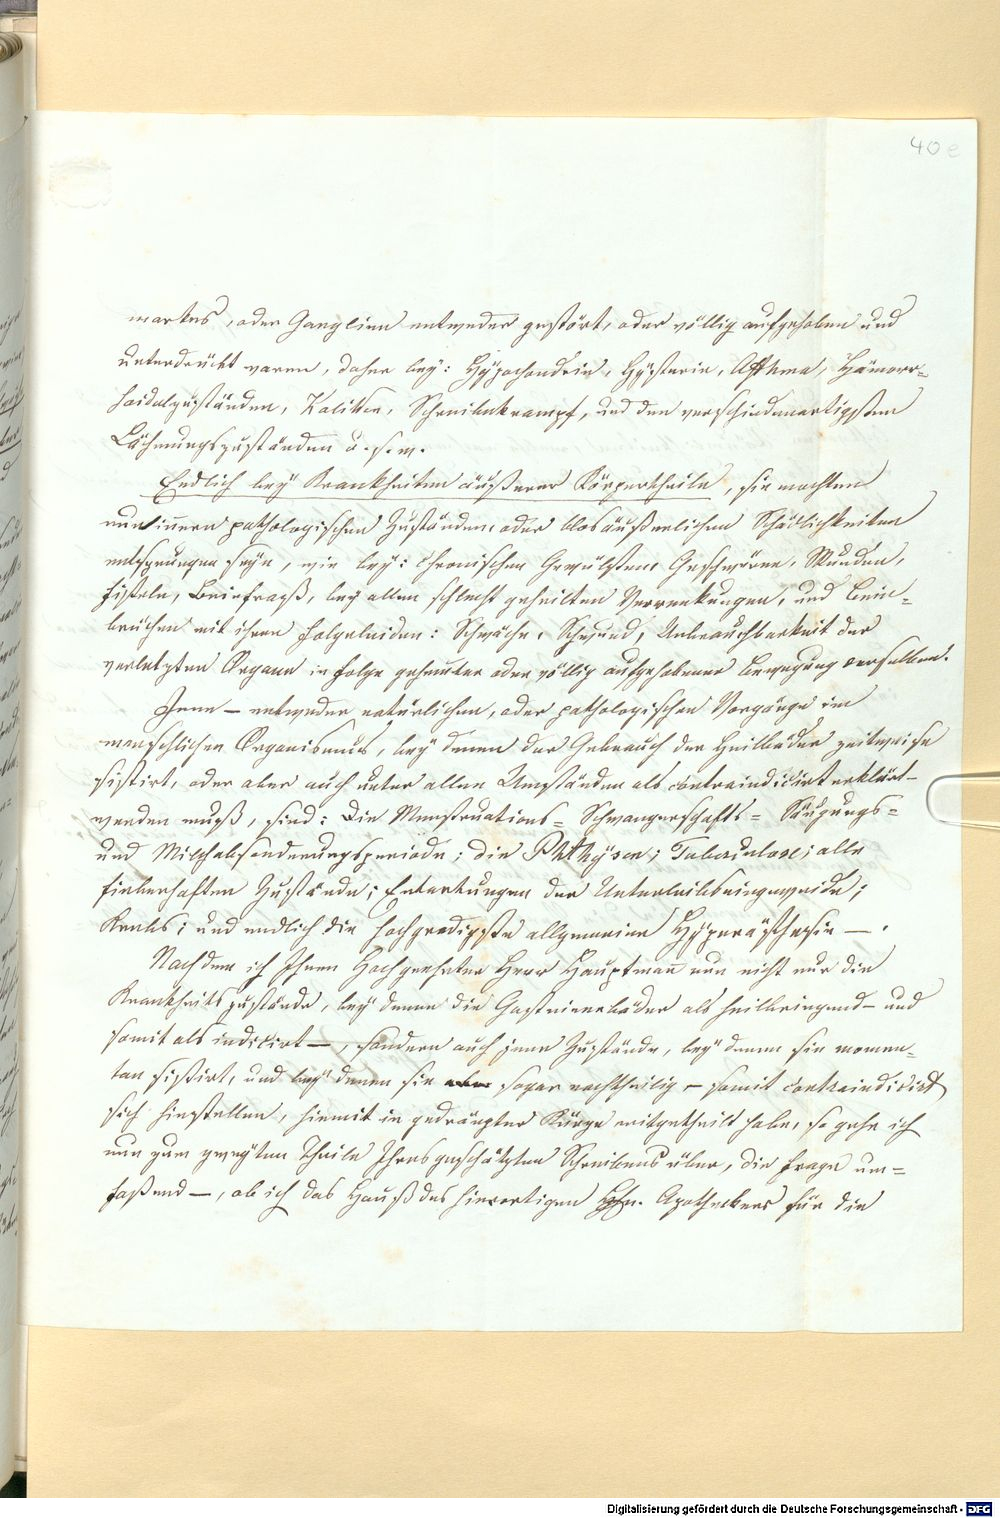 40e
markes, oder Ganglien entweder gestört, oder völlig aufgehoben und
unterdrückt waren, daher bey: Hÿpochondrie, Hÿsterie, Asthma, Hämorr=
hoidalzuständen, Koliken, Schreibekrampf, und den verschiedenartigsten
Lähmungszuständen u.s.w.
Endlich bey Krankheiten äußerer Körpertheile, sie mochten
nun innern pathologischen Zuständen, oder blos äußerlichen Schädlichkeiten
entsprungen seyn, wie bey: chronischen Geschwüren, Wunden,
Fisteln, Beinfraß, bey allen schlecht geheilten Verrenkungen, und Bein=
brüchen mit ihren Folgeleiden: Schwäche, Schwund, Unbrauchbarkeit der
verletzten Organe in Folge gehemmter oder völlig aufgehobener Bewegung derselben.
Jene – entweder natürlichen, oder pathologischen Vorgänge im
menschlichen Organismus, beÿ denen der Gebrauch der Heilbäder zeitweise
sistirt, oder aber auch unter allen Umständen als contraindicirt erklärt
werden muß, sind: Die Menstruations= Schwangerschafts= Säugungs=
und Milchabsonderungsperiode; die Phthÿsen; Tuberculose; alle
fieberhaften Zustände; Entartungen der Unterleibseingeweide;
Krebs; und endlich die hochgradigste allgemeine Hÿperästhesie –.
Nachdem ich Ihnen Hochgeehrter Herr Hauptman nun nicht nur die
Krankheitszustände, beÿ denen die Gasteinerbäder als heilbringend – und
somit als indicirt –, sondern auch jene Zustände, beÿ denen sie momen=
tan sistirt, und beÿ denen sie sogar nachtheilig – somit contraindicirt
sich hinstellen, hiemit in gedrängter Kürze mitgetheilt habe, so gehe ich
nun zum zweÿten Theile Ihres geschätzten Schreibens über, die Frage um=
faßend –, ob ich das Hauß des hierortigen Hn. Apothekers für die
Digitalisierung gefördert durch die Deutsche Forschungsgemeinschaft - DFG